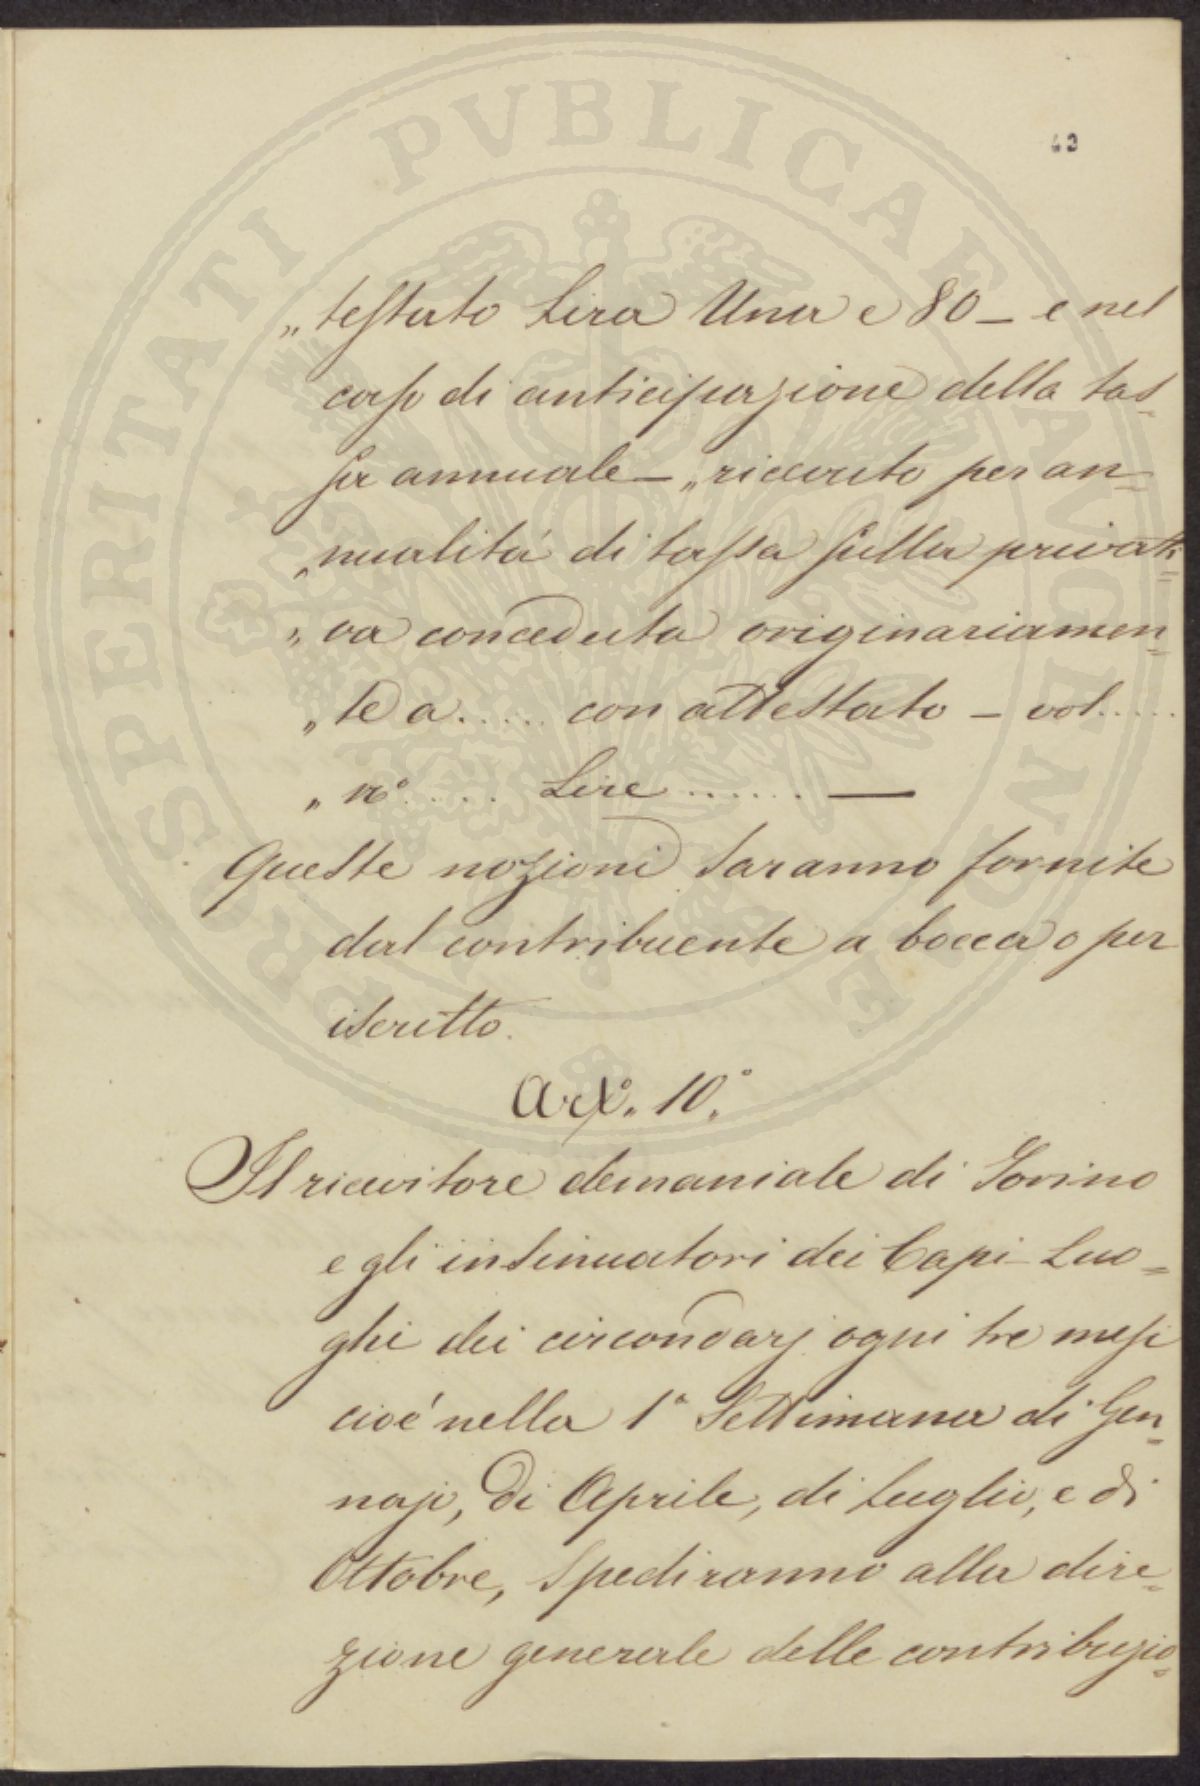 PROSPERITATI PVBLICAE AVGENDAE
„testato Lira Una e 80 _ e nel
caso di anticipazione della tas-
sa annuale _ „ricevuto per an=
„nualitá di tassa sulla privati=
„va conceduta originariamen=
„te a..... con attestato _ vol.....
„n°..... Lire ...... —
Queste nozioni saranno fornite
dal contribuente a bocca o per
iscritto.
Art°. 10.°
Il ricevitore demaniale di Torino
e gli insinuatori dei Capi-Luo=
ghi dei circondarj ogni tre mesi
cioé nella 1ª Settimana di Gen=
najo, di Aprile, di Luglio, e di
Ottobre, spediranno alla dire=
zione generale delle contribuzio=